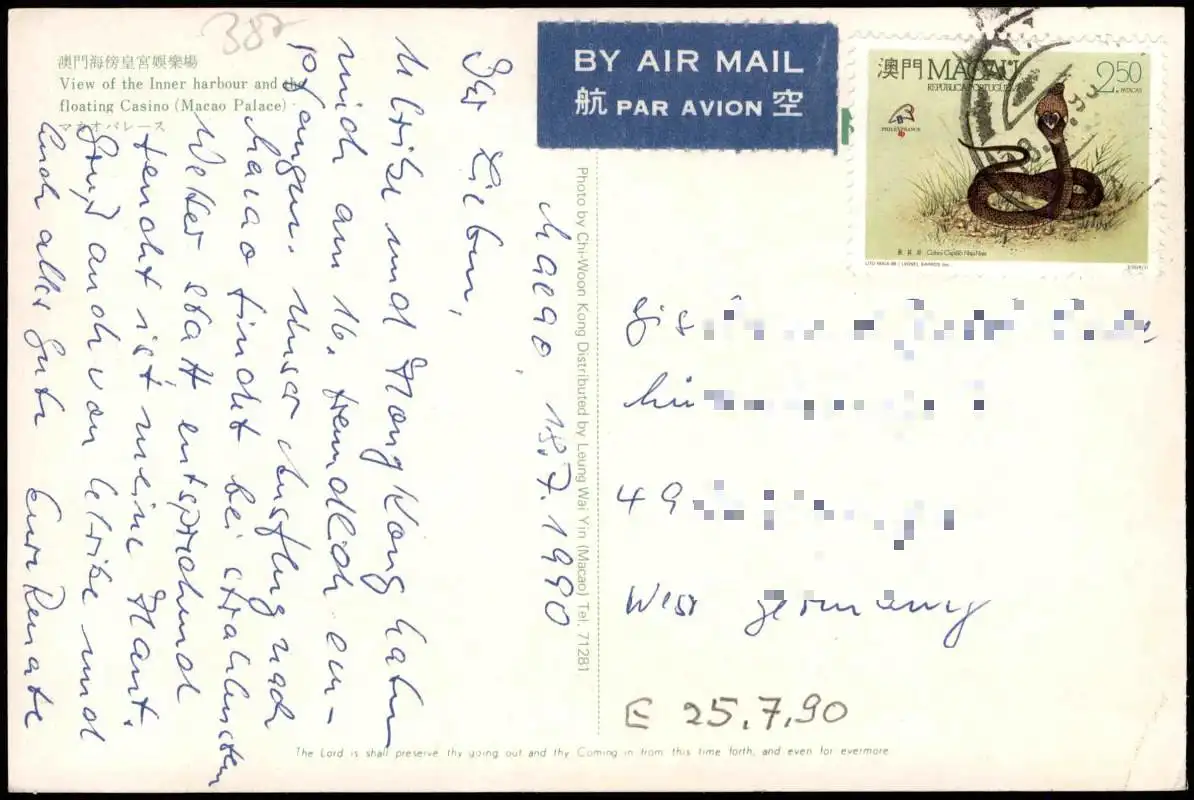 382
澳門海傍皇宮娛樂場
View of the Inner harbour and the
floating Casino (Macao Palace)
マカオパレース
BY AIR MAIL
航 PAR AVION 空
澳門 MACAU 2.50
REPÚBLICA PORTUGUESA PATACAS
PHILEXFRANCE
Macao, 18.7.1990
Ihr Lieben,
Uschi und Hong Kong haben
mich am 16. freundlich em-
pfangen. Unser Ausflug nach
Macao findet bei strahlendem
Wetter statt entsprechend
feucht ist meine Haut.
Gruß auch von Uschi und
Euch alles Gute Eure Renate
Photo by Chi-Woon Kong Distributed by Leung Wai Yin (Macao) Tel. 71281
49
West Germany
E 25.7.90
The Lord is shall preserve thy going out and thy Coming in from this time forth, and even for evermore